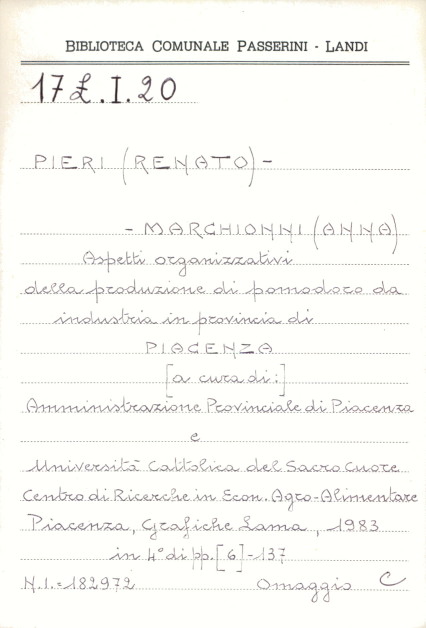 BIBLIOTECA COMUNALE PASSERINI - LANDI
17 £.I.20
PIERI (RENATO) -
- MARCHIONNI (ANNA)
Aspetti organizzativi
della produzione di pomodoro da
industria in provincia di
PIACENZA
[a cura di:]
Amministrazione Provinciale di Piacenza
e
Università Cattolica del Sacro Cuore
Centro di Ricerche in Econ. Agro-Alimentare
Piacenza, Grafiche Lama, 1983
in 4° di pp. [6]-137
N.I.=182972 Omaggio C